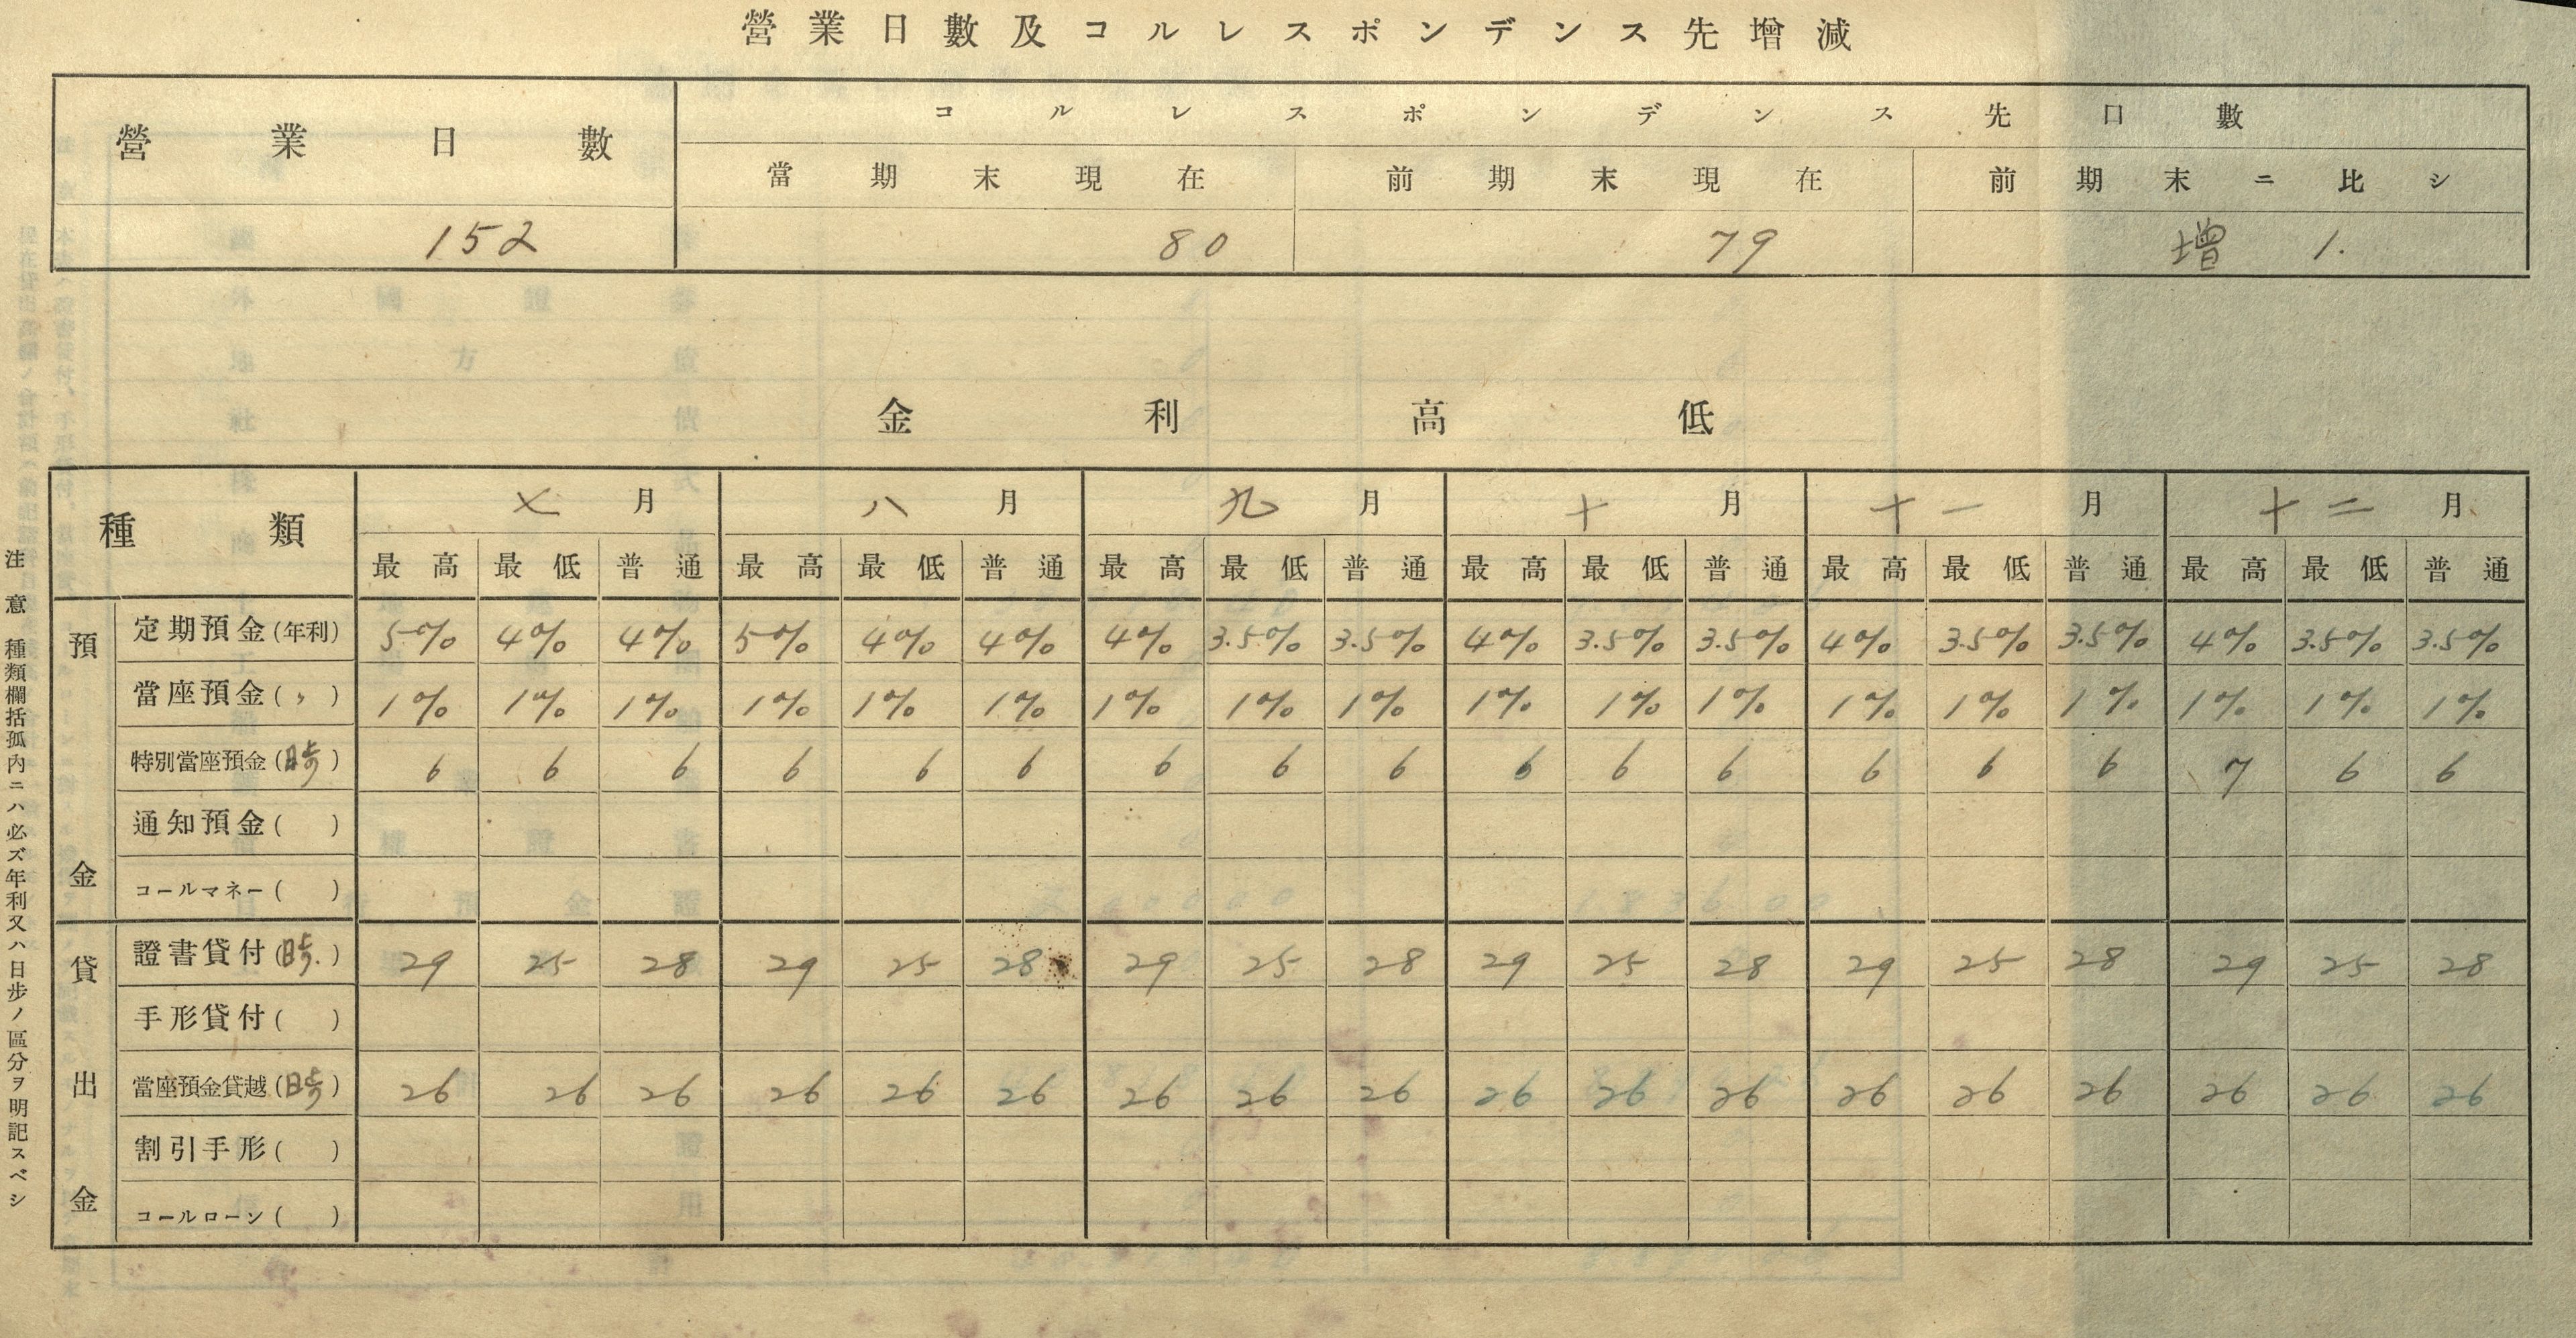 營業日數及コルレスポンデンス先增減
營業日數 コルレスポンデンス先口數
當期末現在 前期末現在 前期末ニ比シ
152 80 79 增 1.
金利高低
種類 七月 八月 九月 十月 十一月 十二月
最高 最低 普通 最高 最低 普通 最高 最低 普通 最高 最低 普通 最高 最低 普通 最高 最低 普通
預金
定期預金(年利) 5% 4% 4% 5% 4% 4% 4% 3.5% 3.5% 4% 3.5% 3.5% 4% 3.5% 3.5% 4% 3.5% 3.5%
當座預金(〃) 1% 1% 1% 1% 1% 1% 1% 1% 1% 1% 1% 1% 1% 1% 1% 1% 1% 1%
特別當座預金(日歩) 6 6 6 6 6 6 6 6 6 6 6 6 6 6 6 7 6 6
通知預金( )
コールマネー( )
貸出金
證書貸付(日歩.) 29 25 28 29 25 28 29 25 28 29 25 28 29 25 28 29 25 28
手形貸付( )
當座預金貸越(日歩) 26 26 26 26 26 26 26 26 26 26 26 26 26 26 26 26 26 26
割引手形( )
コールローン( )
注意 種類欄括孤內ニハ必ズ年利又ハ日步ノ區分ヲ明記スベシ